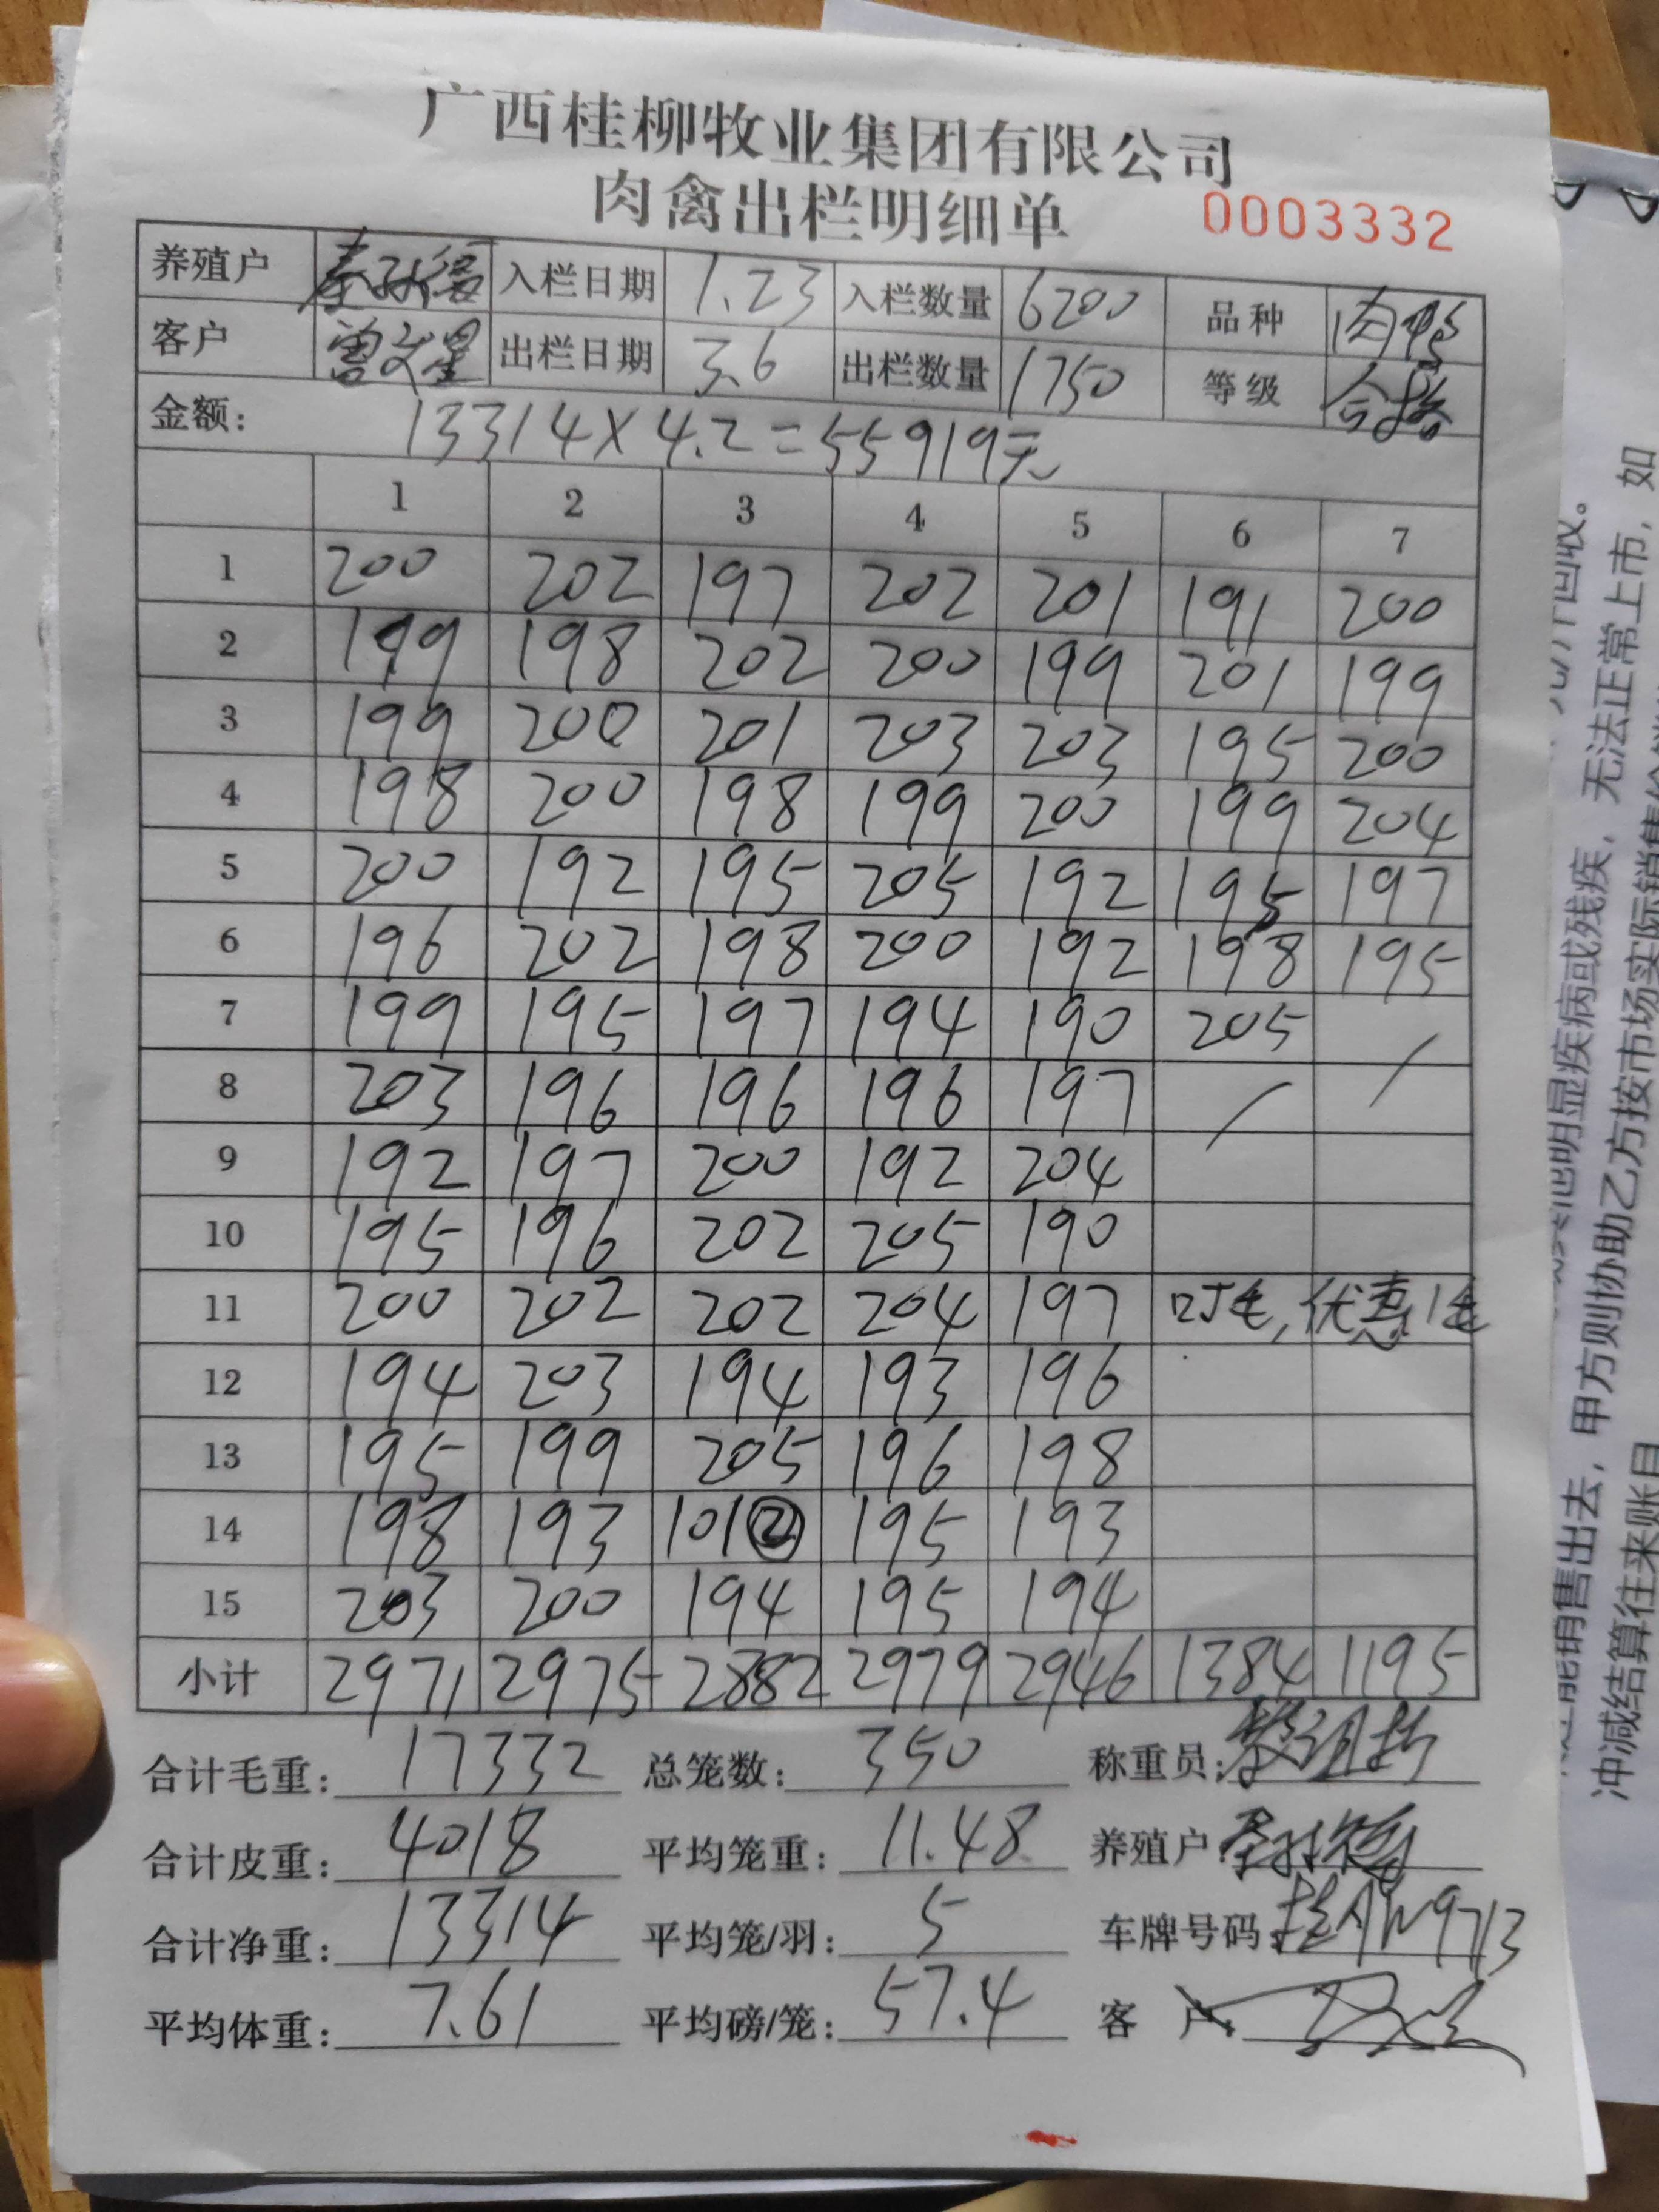 广西桂柳牧业集团有限公司
肉禽出栏明细单 0003332
养殖户 入栏日期 1.23 入栏数量 6200 品种 肉鸭
客户 曾文星 出栏日期 3.6 出栏数量 1750 等级 合格
金额: 13314X4.2=55919元
1 2 3 4 5 6 7
1 200 202 197 202 201 191 200
2 199 198 202 200 199 201 199
3 199 200 201 203 203 195 200
4 198 200 198 199 200 199 204
5 200 192 195 205 192 195 197
6 196 202 198 200 192 198 195
7 199 195 197 194 190 205 /
8 203 196 196 196 197 /
9 192 197 200 192 204
10 195 196 202 205 190
11 200 202 202 204 197 优惠1毛
12 194 203 194 193 196
13 195 199 205 196 198
14 198 193 101② 195 193
15 203 200 194 195 194
小计 2971 2975 2882 2979 2946 1384 1195
合计毛重: 17332 总笼数: 350 称重员:
合计皮重: 4018 平均笼重: 11.48 养殖户:
合计净重: 13314 平均笼/羽: 5 车牌号码:
平均体重: 7.61 平均磅/笼: 57.4 客户:
回收。
无法正常上市，如
明显疾病或残疾，
甲方则协助乙方按市场实际销售
能销售出去，
冲减结算往来账目